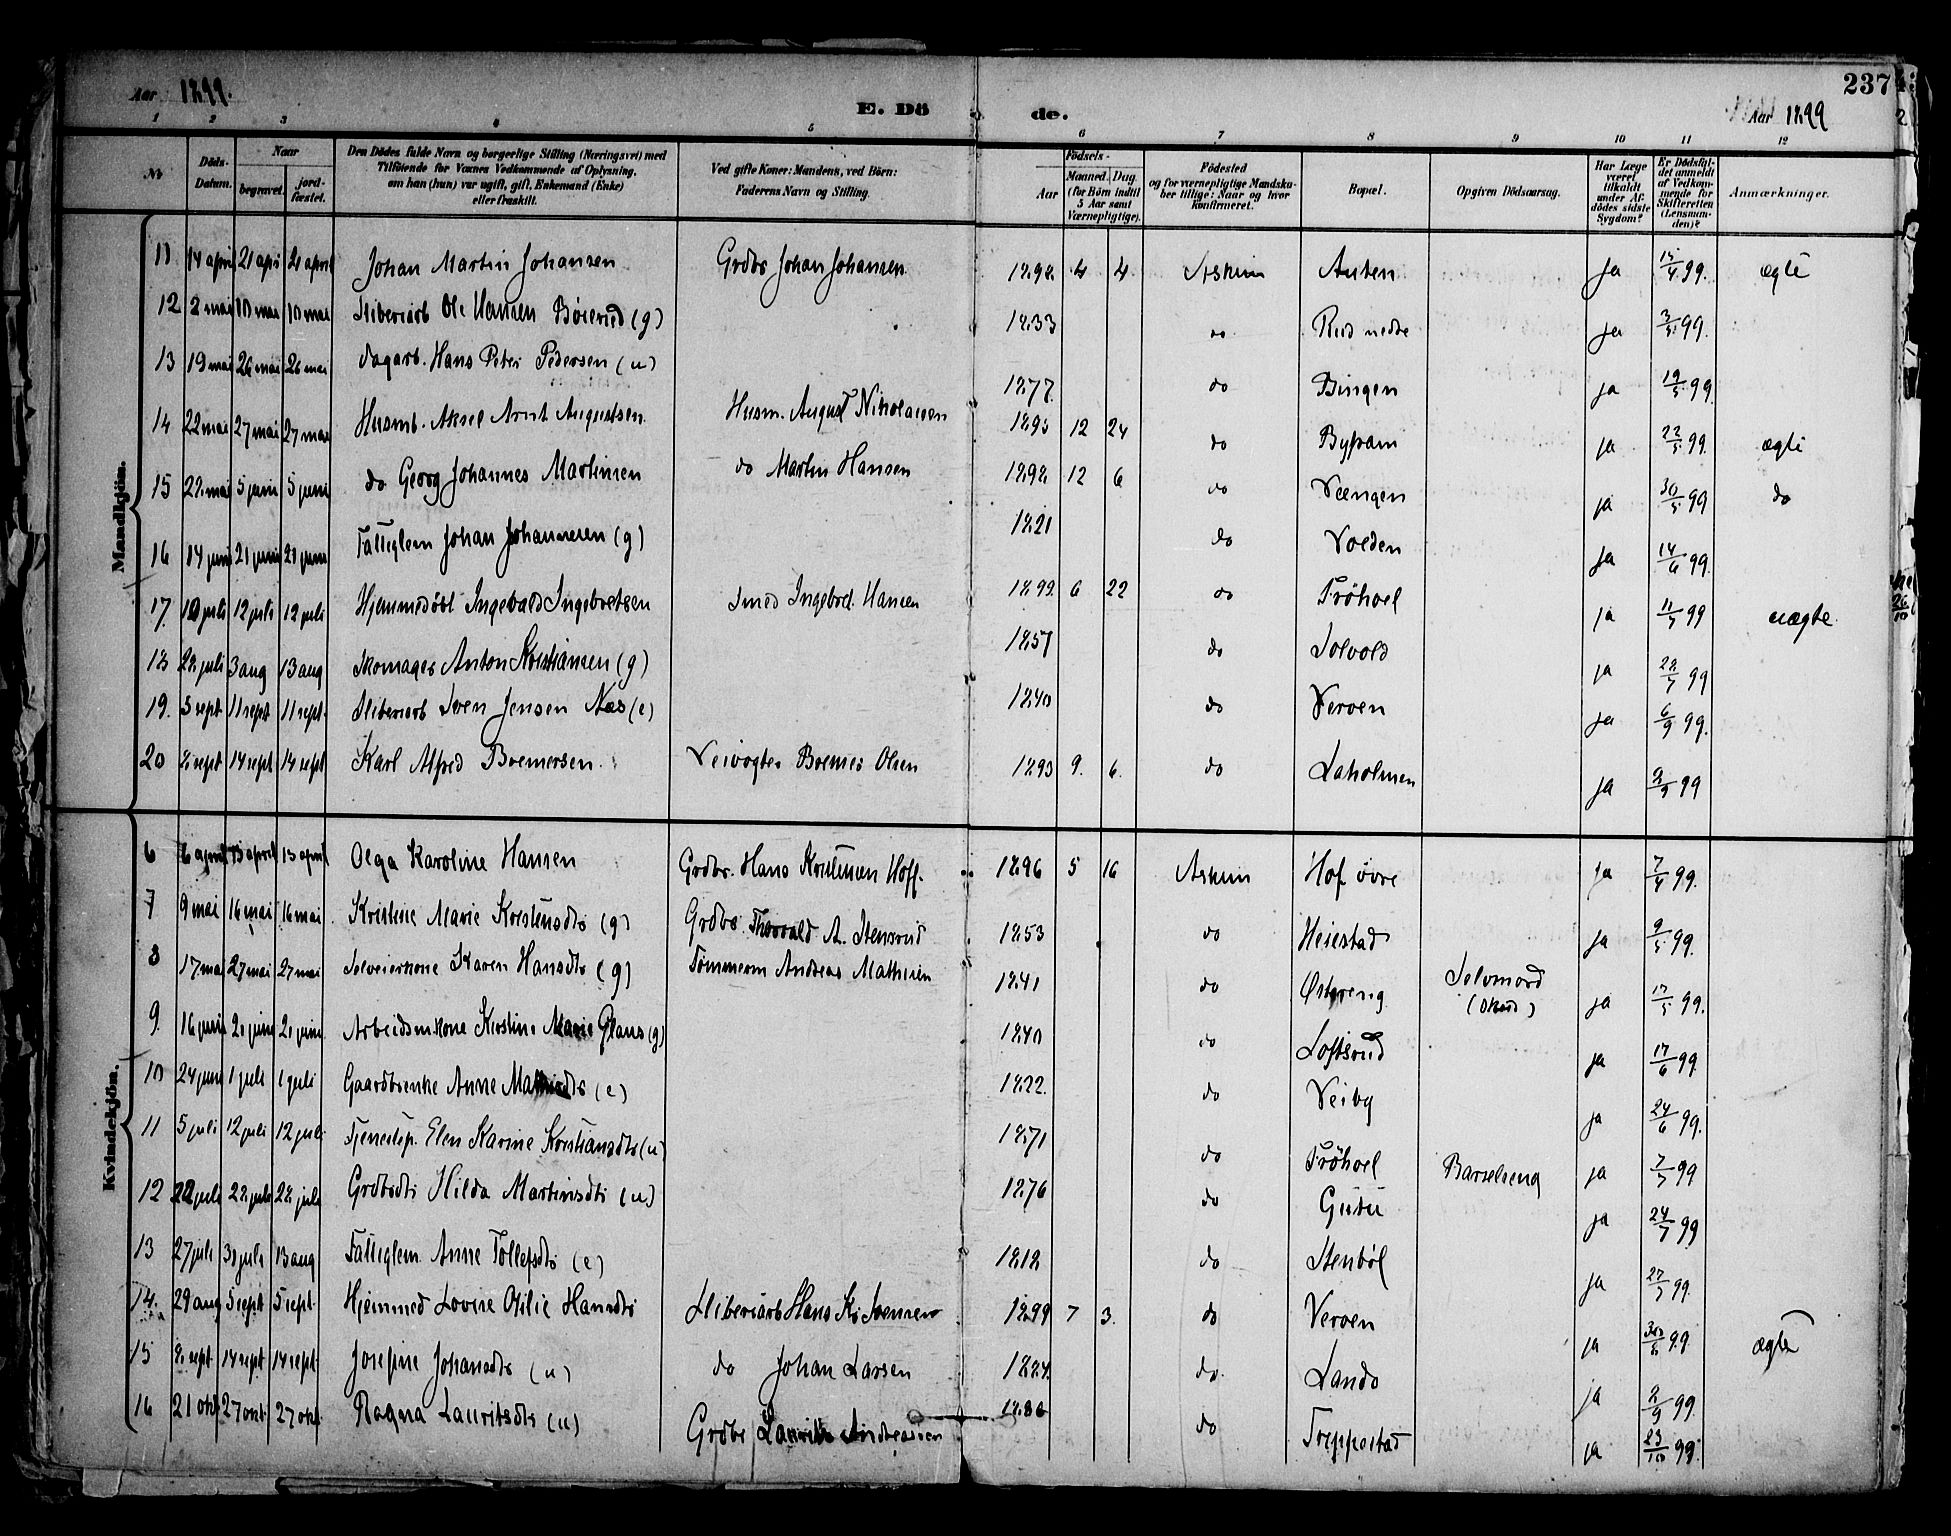 Aar 1899.
E. Döde.
Aar 1899
237
1 2 3 4 5 6 7 8 9 10 11 12
No.
Döds-Datum.
Naar
begravet.
jordfæstet.
Den Dödes fulde Navn og borgerlige Stilling (Næringsvei) med Tilföiende for Voxnes Vedkommende af Oplysning, om han (hun) var ugift, gift, Enkemand (Enke) eller fraskilt.
Ved gifte Koner: Mandens, ved Börn: Faderens Navn og Stilling.
Födsels-
Aar
Maaned. Dag. (for Börn indtil 5 Aar samt Værnepligtige).
Födested og for værnepligtige Mandskaber tillige: Naar og hvor Konfirmeret.
Bopæl.
Opgiven Dödsaarsag.
Har Læge været tilkaldt under Afdödes sidste Sygdom?
Er Dödsfaldet anmeldt af Vedkommende for Skifteretten (Lensmanden)?
Anmærkninger.
Mandkjön.
11 14 april 21 april 21 april Johan Martin Johansen Grdbr Johan Johansen 1898 4 4 Askim Auten ja 15/4 99. ægte
12 2 mai 10 mai 10 mai Sliberiarb Ole Hansen Böierud (g) 1833 do Rud nedre ja 3/5 99.
13 19 mai 26 mai 26 mai Dagarb. Hans Peter Pedersen (u) 1877 do Bingen ja 19/5 99.
14 22 mai 27 mai 27 mai Husmb. Aksel Arnt Augustsen Husm. August Nikolaisen 1895 12 24 do Byfram ja 22/5 99. ægte
15 28 mai 5 juni 5 juni do Georg Johannes Martinsen do Martin Hansen 1898 12 6 do Vængen ja 30/5 99 do
16 14 juni 21 juni 21 juni Fattiglem Johan Johannesen (g) 1821 do Volden ja 14/6 99.
17. 10 juli 12 juli 12 juli Hjemmedöbt Ingebald Ingebretsen Smed Ingebrd. Hansen 1899 6 22 do Fröhoel ja 11/7 99 uægte
18 28 juli 3 aug 13 aug Skomager Anton Kristiansen (g) 1857 do Solvold ja 28/7 99
19. 5 sept 11 sept 11 sept. Sliberiarb Sven Jensen Næs (e) 1840 do Verven ja 6/9 99.
20 8 sept 14 sept 14 sept Karl Alfred Bremersen. Veivogter Bremer Olsen 1893 9. 6. do Laholmen ja 9/9 99
Kvindekjön.
6 6 april 13 april 13 april Olga Karoline Hansen Grdbr. Hans Kristensen Hoff. 1896 5 16 Askim Hof övre ja 7/4 99.
7 9 mai 16 mai 16 mai Kristine Marie Kristensdtr (g) Grdbr Thorvald A. Stensrud 1853 do Heiestad ja 9/5 99.
8 17 mai 27 mai 27 mai Selveierkone Karen Hansdtr (g) Tömmerm Andreas Mathisen 1841 do Østereng Selvmord (Skud) ja 17/5 99.
9. 16 juni 21 juni 21 juni Arbeidsmkone Kirstine Marie Glans (g) 1840 do Loftsrud ja 17/6 99.
10 24 juni 1 juli 1 juli Gaardbrenke Anne Mathisdtr (e) 1822. do Veiby ja 24/6 99.
11 5 juli 12 juli 12 juli Tjenestep. Elen Karine Kristiansdtr (u) 1871 do Fröhoel Barselseng ja 7/7 99
12 22 juli 28 juli 28 juli Grdbdtr Hilda Martinsdtr (u) 1876 do Gutu ja 24/7 99
13 27 juli 31 juli 13 aug Fattiglem. Anne Tollefsdtr (e) 1818 do Stenböl ja 27/7 99.
14. 29 aug 5 sept 5 sept. Hjemmed Lovise Otilie Hansdtr Sliberiarb Hans Kr Svensen 1899 7 3. do Verven ja 30/8 99. ægte
15 8 sept 14 sept 14 sept. Josefine Johansdtr (u) do Johan Larsen 1884 do. Lando ja 8/9 99.
16 21 okt 27 okt. 27 okt. Ragna Lauritsdtr (u) Grdbr Laurits Andreassen 1886 do Treppestad ja 23/10 99.